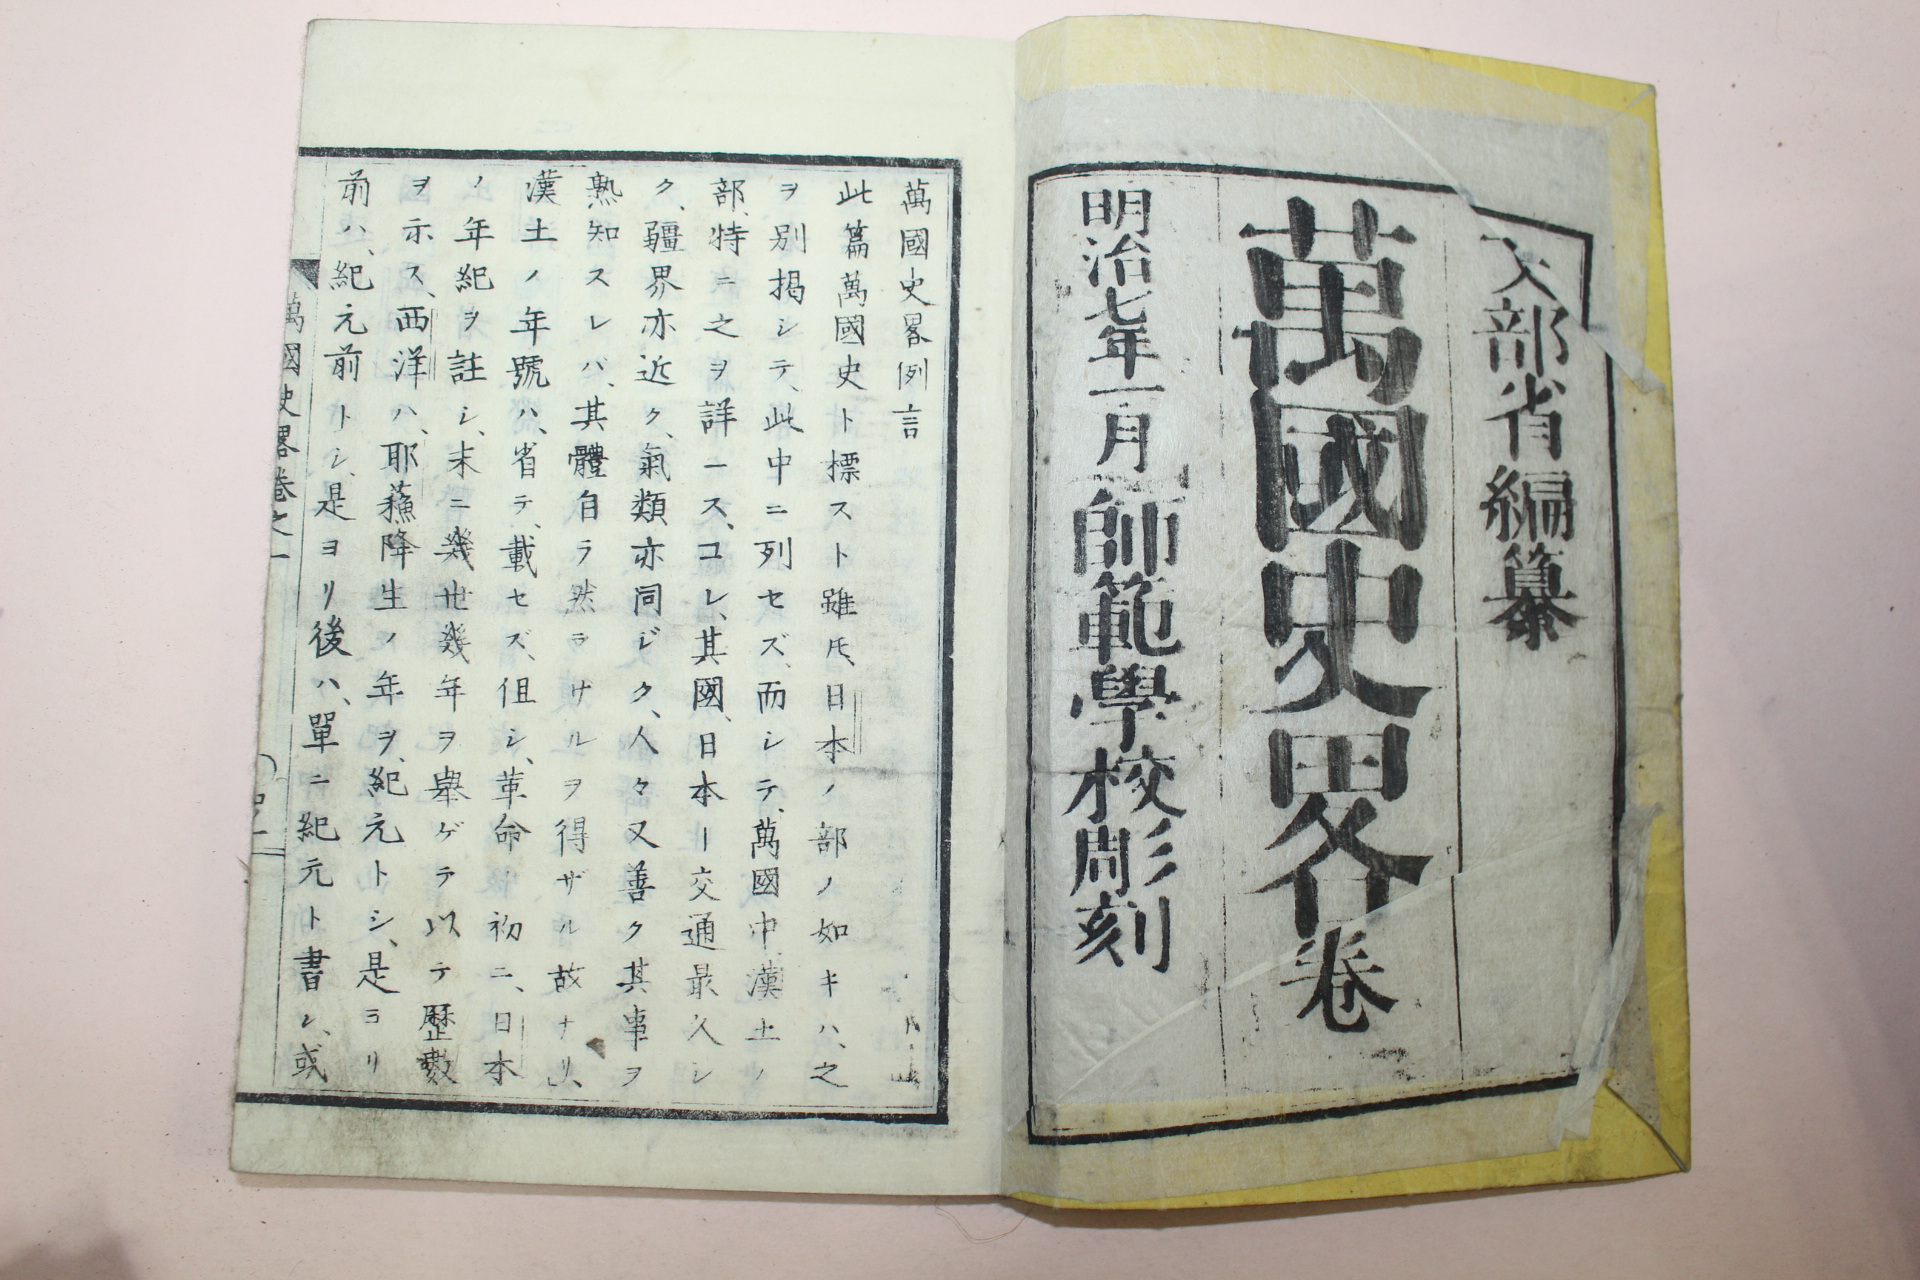 文部省編纂
萬國史畧卷
明治七年一月師範學校彫刻
萬國史畧例言
此篇萬國史ト標スト雖𪜈、日本ノ部ノ如キハ、之
ヲ別揭シテ、此中ニ列セズ、而シテ、萬國中、漢土ノ
部、特ニ之ヲ詳ース、コレ、其國、日本ー交通最久シ
ク、疆界亦近ク、氣類亦同ジク、人々又善ク其事ヲ
熟知スレバ、其體自ラ然ラサルヲ得ザル故ナリ、
漢土ノ年號ハ、省テ、載セズ、但シ、革命ノ初ニ、日本
ノ年紀ヲ註シ、末ニ幾世幾年ヲ舉ゲテ以テ歷數
ヲ示ス、西洋ハ、耶蘇降生ノ年ヲ、紀元トシ、是ヨリ
前ハ、紀元前トシ、是ヨリ後ハ、單ニ紀元ト書シ、或
萬國史畧卷之一